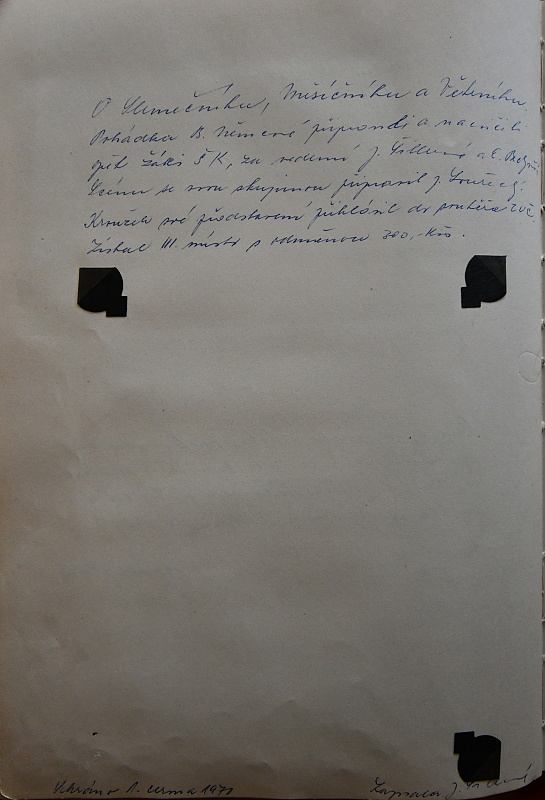 O Slunečníku, Měsíčníku a Větrníku,
Pohádka B. Němcové připravili a nacvičili
opět žáci ŠK, za vedení J. a L.
Scénu se svou skupinou připravil J.
Kroužek své představení přihlásil do soutěže
Získal III. místo s odměnou 300,-Kčs.
Schránov 8. června 1971
Zapsala J.